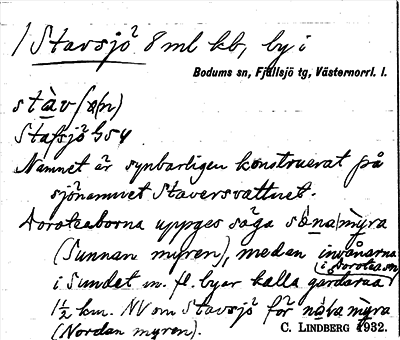 1 Stavsjö 8 ml kb, by i
Bodums sn, Fjällsjö tg, Västernorrl. l.
Stafsjö G54
Namnet är synbarligen konstruerat på
sjönamnet Staversvattnet.
Doroteaborna uppges säga
(Sunnan myren), medan invånarna
i Dorotea sn
i Sundet m. fl. byar kalla gårdarna
1½ km. NV om Stavsjö för
(Nordan myren).
C. LINDBERG 1932.